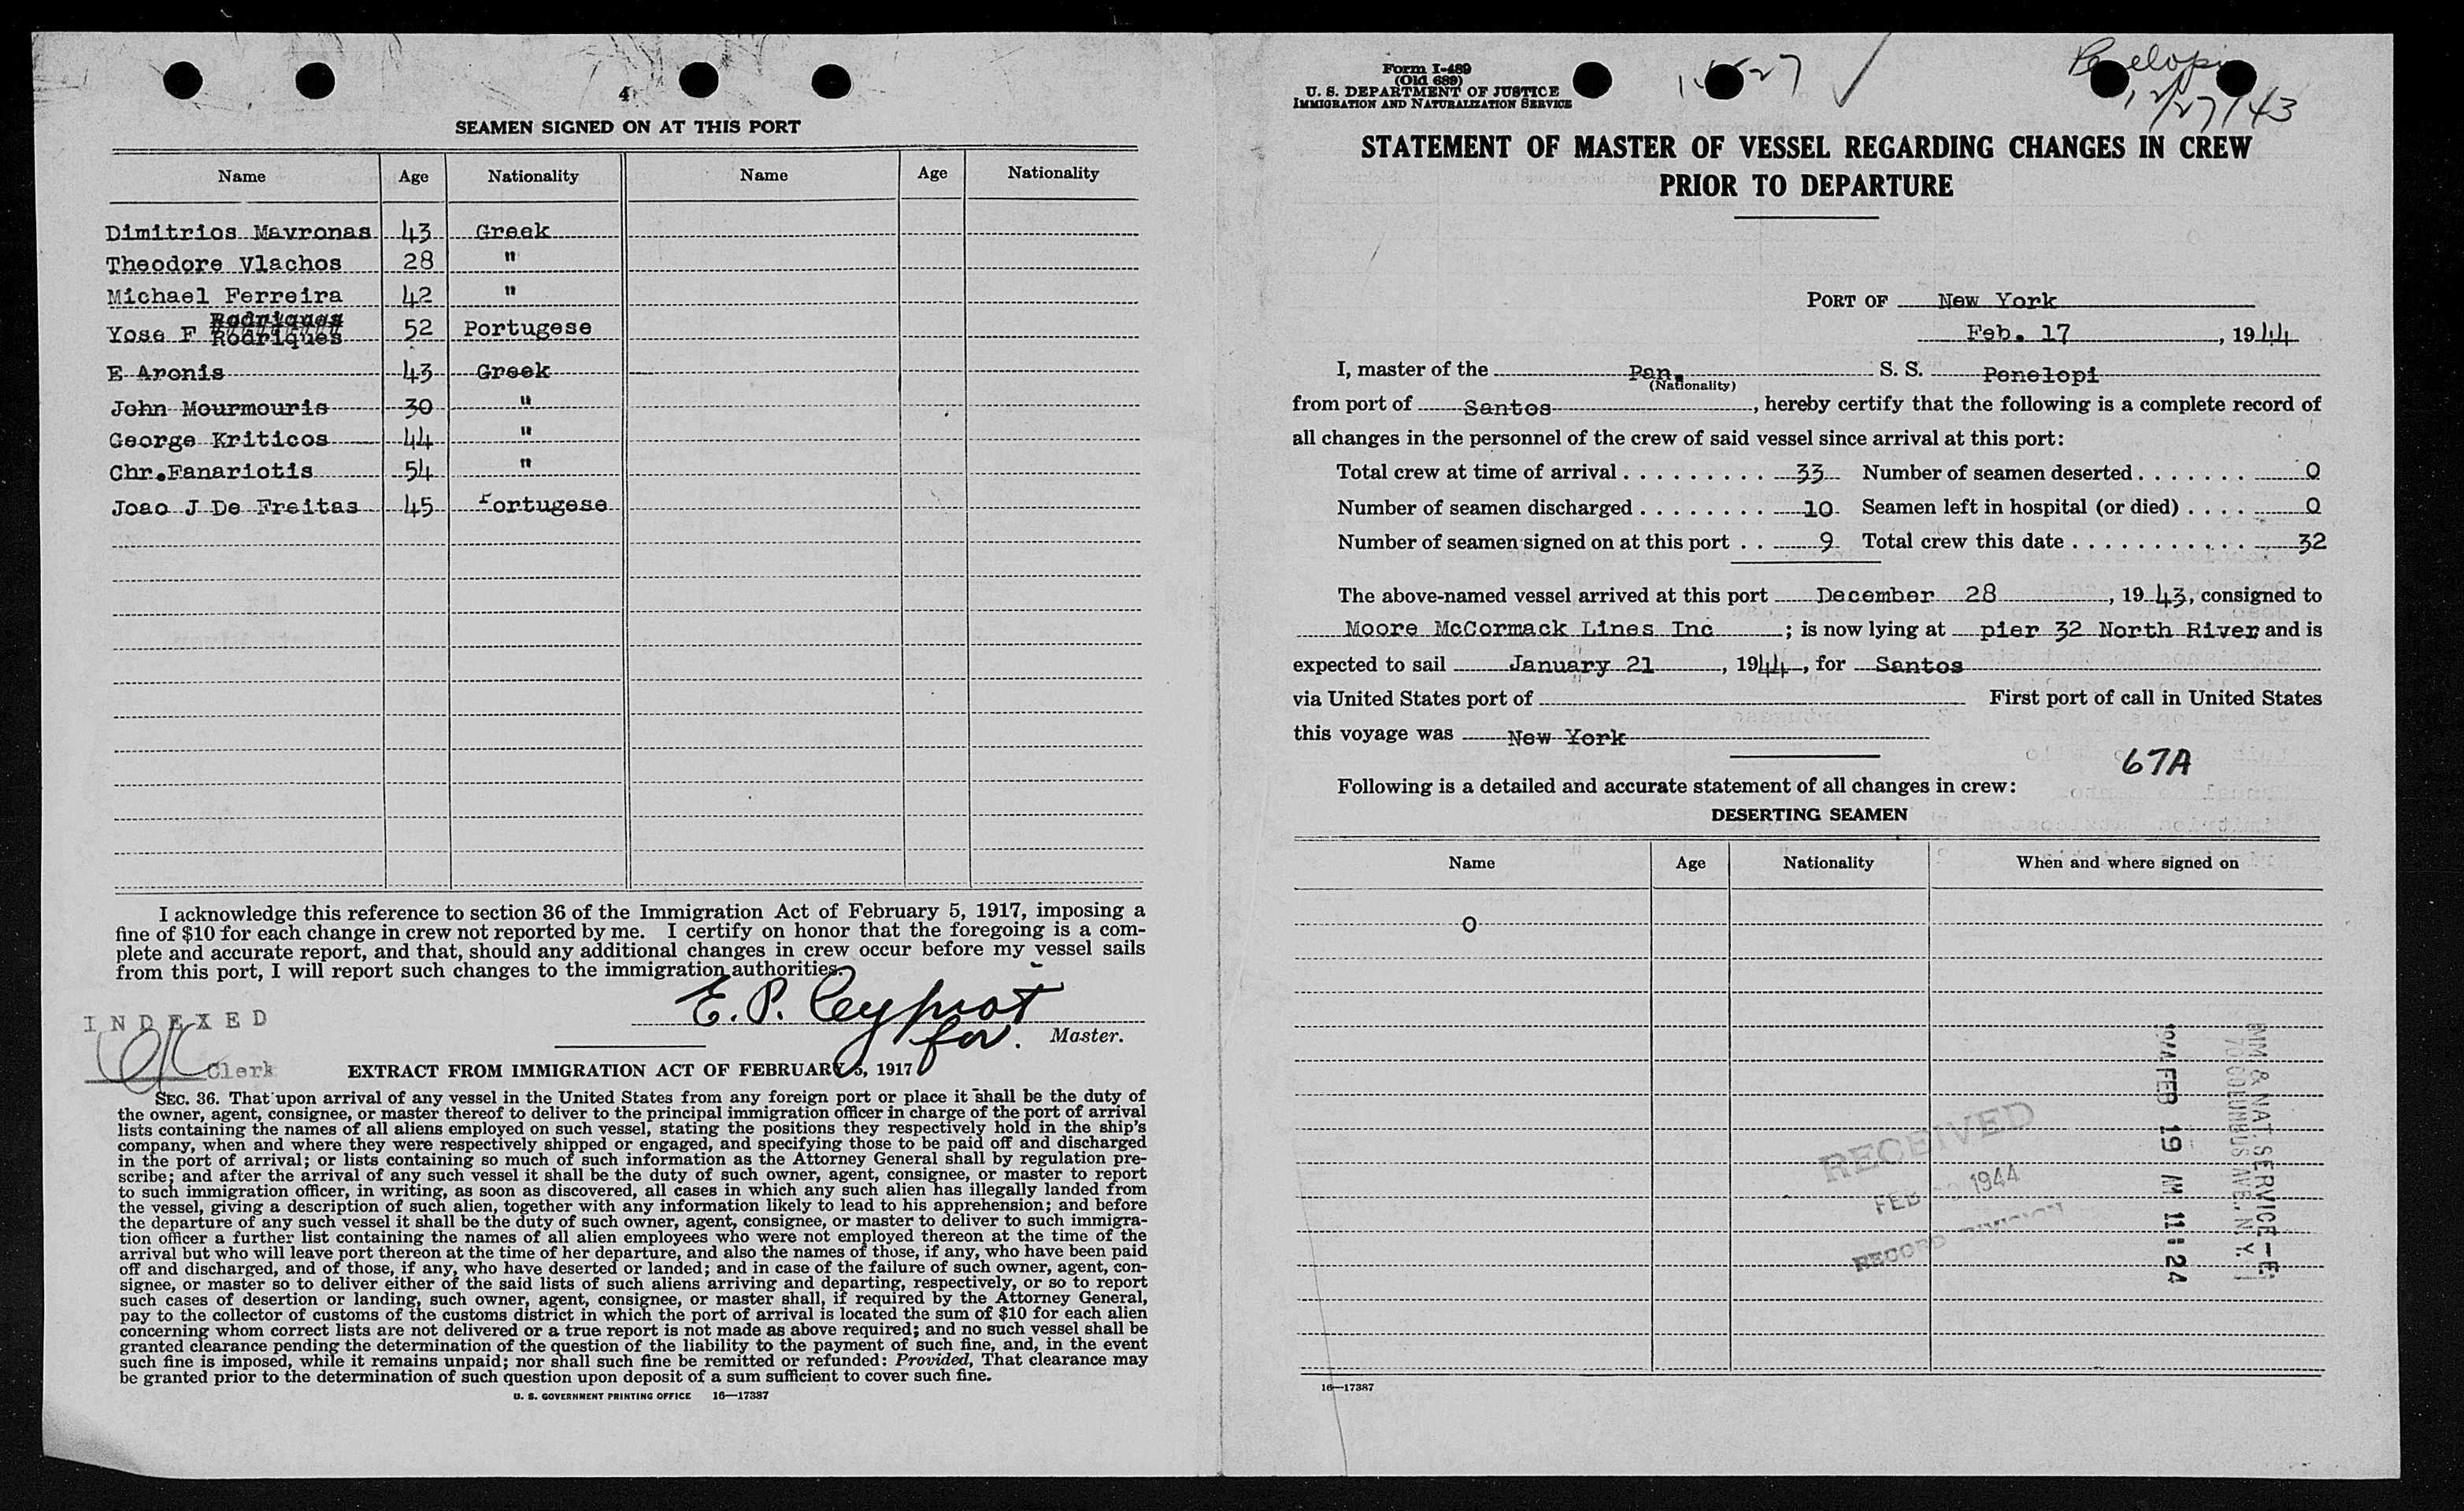 4
SEAMEN SIGNED ON AT THIS PORT
Name Age Nationality Name Age Nationality
Dimitrios Mavronas 43 Greek
Theodore Vlachos 28 "
Michael Ferreira 42 "
Rodriques
Yose F Rodriques 52 Portugese
E Aronis 43 Greek
John Mourmouris 30 "
George Kriticos 44 "
Chr.Fanariotis 54 "
Joao J De Freitas 45 Portugese
I acknowledge this reference to section 36 of the Immigration Act of February 5, 1917, imposing a
fine of $10 for each change in crew not reported by me. I certify on honor that the foregoing is a com-
plete and accurate report, and that, should any additional changes in crew occur before my vessel sails
from this port, I will report such changes to the immigration authorities.
E. P.
for. Master.
INDEXED
Clerk
EXTRACT FROM IMMIGRATION ACT OF FEBRUARY 5, 1917
SEC. 36. That upon arrival of any vessel in the United States from any foreign port or place it shall be the duty of
the owner, agent, consignee, or master thereof to deliver to the principal immigration officer in charge of the port of arrival
lists containing the names of all aliens employed on such vessel, stating the positions they respectively hold in the ship's
company, when and where they were respectively shipped or engaged, and specifying those to be paid off and discharged
in the port of arrival; or lists containing so much of such information as the Attorney General shall by regulation pre-
scribe; and after the arrival of any such vessel it shall be the duty of such owner, agent, consignee, or master to report
to such immigration officer, in writing, as soon as discovered, all cases in which any such alien has illegally landed from
the vessel, giving a description of such alien, together with any information likely to lead to his apprehension; and before
the departure of any such vessel it shall be the duty of such owner, agent, consignee, or master to deliver to such immigra-
tion officer a further list containing the names of all alien employees who were not employed thereon at the time of the
arrival but who will leave port thereon at the time of her departure, and also the names of those, if any, who have been paid
off and discharged, and of those, if any, who have deserted or landed; and in case of the failure of such owner, agent, con-
signee, or master so to deliver either of the said lists of such aliens arriving and departing, respectively, or so to report
such cases of desertion or landing, such owner, agent, consignee, or master shall, if required by the Attorney General,
pay to the collector of customs of the customs district in which the port of arrival is located the sum of $10 for each alien
concerning whom correct lists are not delivered or a true report is not made as above required; and no such vessel shall be
granted clearance pending the determination of the question of the liability to the payment of such fine, and, in the event
such fine is imposed, while it remains unpaid; nor shall such fine be remitted or refunded: Provided, That clearance may
be granted prior to the determination of such question upon deposit of a sum sufficient to cover such fine.
U. S. GOVERNMENT PRINTING OFFICE 16—17387
Form I-489
(Old 689)
U. S. DEPARTMENT OF JUSTICE
IMMIGRATION AND NATURALIZATION SERVICE
Penelopi
12/27/43
STATEMENT OF MASTER OF VESSEL REGARDING CHANGES IN CREW
PRIOR TO DEPARTURE
PORT OF New York
Feb. 17, 1944
I, master of the Pan. S. S. Penelopi
(Nationality)
from port of Santos, hereby certify that the following is a complete record of
all changes in the personnel of the crew of said vessel since arrival at this port:
Total crew at time of arrival . . . . . . . . . . 33 Number of seamen deserted . . . . . . . 0
Number of seamen discharged . . . . . . . . 10 Seamen left in hospital (or died) . . . . 0
Number of seamen signed on at this port . . 9 Total crew this date . . . . . . . . . . . . 32
The above-named vessel arrived at this port December 28, 1943, consigned to
Moore McCormack Lines Inc; is now lying at pier 32 North River and is
expected to sail January 21, 1944, for Santos
via United States port of First port of call in United States
this voyage was New York
67A
Following is a detailed and accurate statement of all changes in crew:
DESERTING SEAMEN
Name Age Nationality When and where signed on
0
RECEIVED
FEB 1944
RECORD DIVISION
1944 FEB 19 AM 11:24
IMM & NAT. SERVICE-E
70 COLUMBUS AVE. N.Y.
16—17387